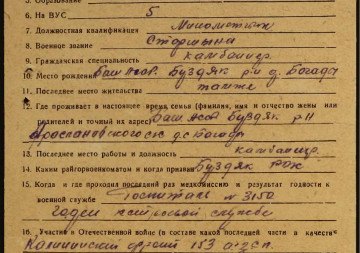 5. Образование
6. На ВУС 5
7. Должностная квалификация Минометчик
8. Военное звание Старшина
9. Гражданская специальность комбайнер
10. Место рождения Баш Асср. Буздяк р-н д. Богады
11. Последнее место жительства также
12. Где проживает в настоящее время семья (фамилия, имя и отчество жены или
родителей и точный их адрес) Баш Асср Буздяк р-н
с/с д. Богады
13. Последнее место работы и должность комбайнер.
14. Каким райгорвоенкоматом и когда призван Буздяк РВК
15. Когда и где проходил последний раз медкомиссию и результат годности к
военной службе Госпиталь N 3150
годен к строевой службе
16. Участие в Отечественной войне (в составе какой последней части и в качестве
Калининский фронт 153